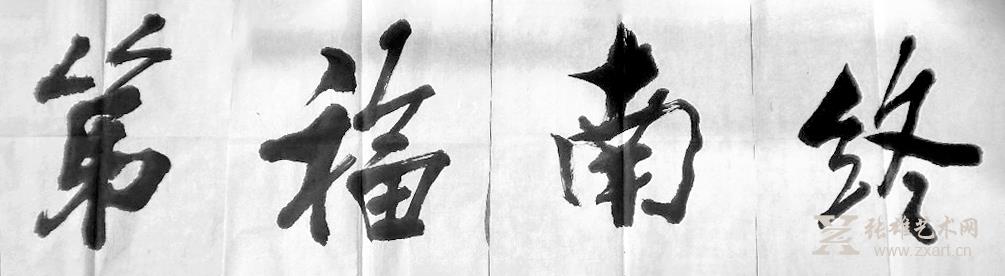 终南福第
张雄艺术网
www.zxart.cn